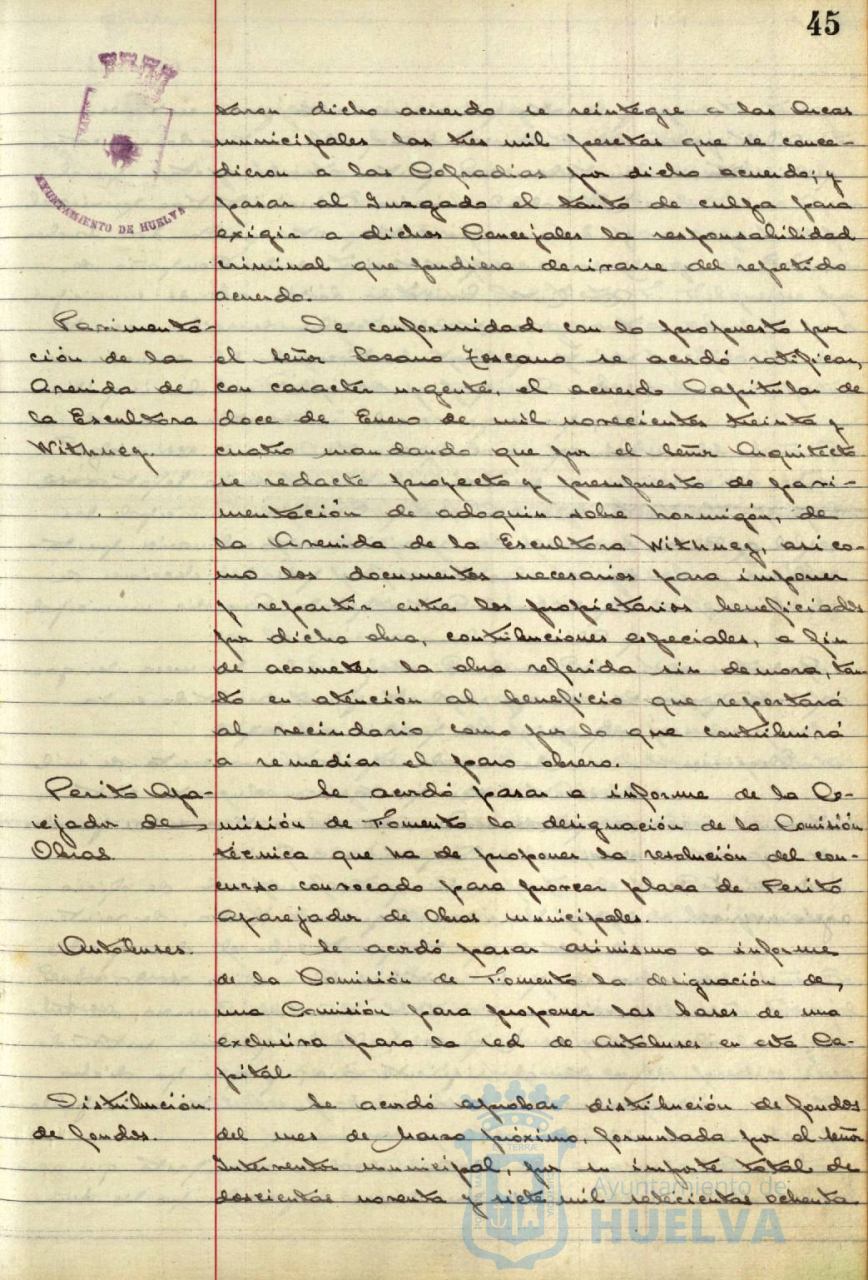 45
AYUNTAMIENTO DE HUELVA
taron dicho acuerdo se reintegre a las Arcas
municipales las tres mil pesetas que se conce-
dieron a las Cofradías por dicho acuerdo; y
pasar al Juzgado el tanto de culpa para
exigir a dichos Concejales la responsabilidad
criminal que pudiera derivarse del repetido
acuerdo.
Pavimenta-
ción de la
Avenida de
la Escultora
Withney.
De conformidad con lo propuesto por
el Señor Lozano Toscano se acordó ratificar,
con caracter urgente, el acuerdo Capitular de
doce de Enero de mil novecientos treinta y
cuatro mandando que por el Señor Arquitecto
se redacte proyecto y presupuesto de pavi-
mentación de adoquin sobre hormigón, de
la Avenida de la Escultora Withney, asi co-
mo los documentos necesarios para imponer
y repartir entre los propietarios beneficiados
por dicha obra, contribuciones especiales, a fin
de acometer la obra referida sin demora, tan-
to en atención al beneficio que reportará
al vecindario como por lo que contribuirá
a remediar el paro obrero.
Perito Apa-
rejador de
Obras.
Se acordó pasar a informe de la Co-
misión de Fomento la designación de la Comisión
técnica que ha de proponer la resolución del con-
curso convocado para proveer plaza de Perito
Aparejador de Obras municipales.
Autobuses.
Se acordó pasar asimismo a informe
de la Comisión de Fomento la designación de
una Comisión para proponer las bases de una
exclusiva para la red de Autobuses en esta Ca-
pital.
Distribución
de fondos.
Se acordó aprobar distribución de fondos
del mes de Marzo próximo, formulada por el señor
Interventor municipal, por su importe total de
doscientas noventa y siete mil setecientas ochenta
Ayuntamiento de
HUELVA